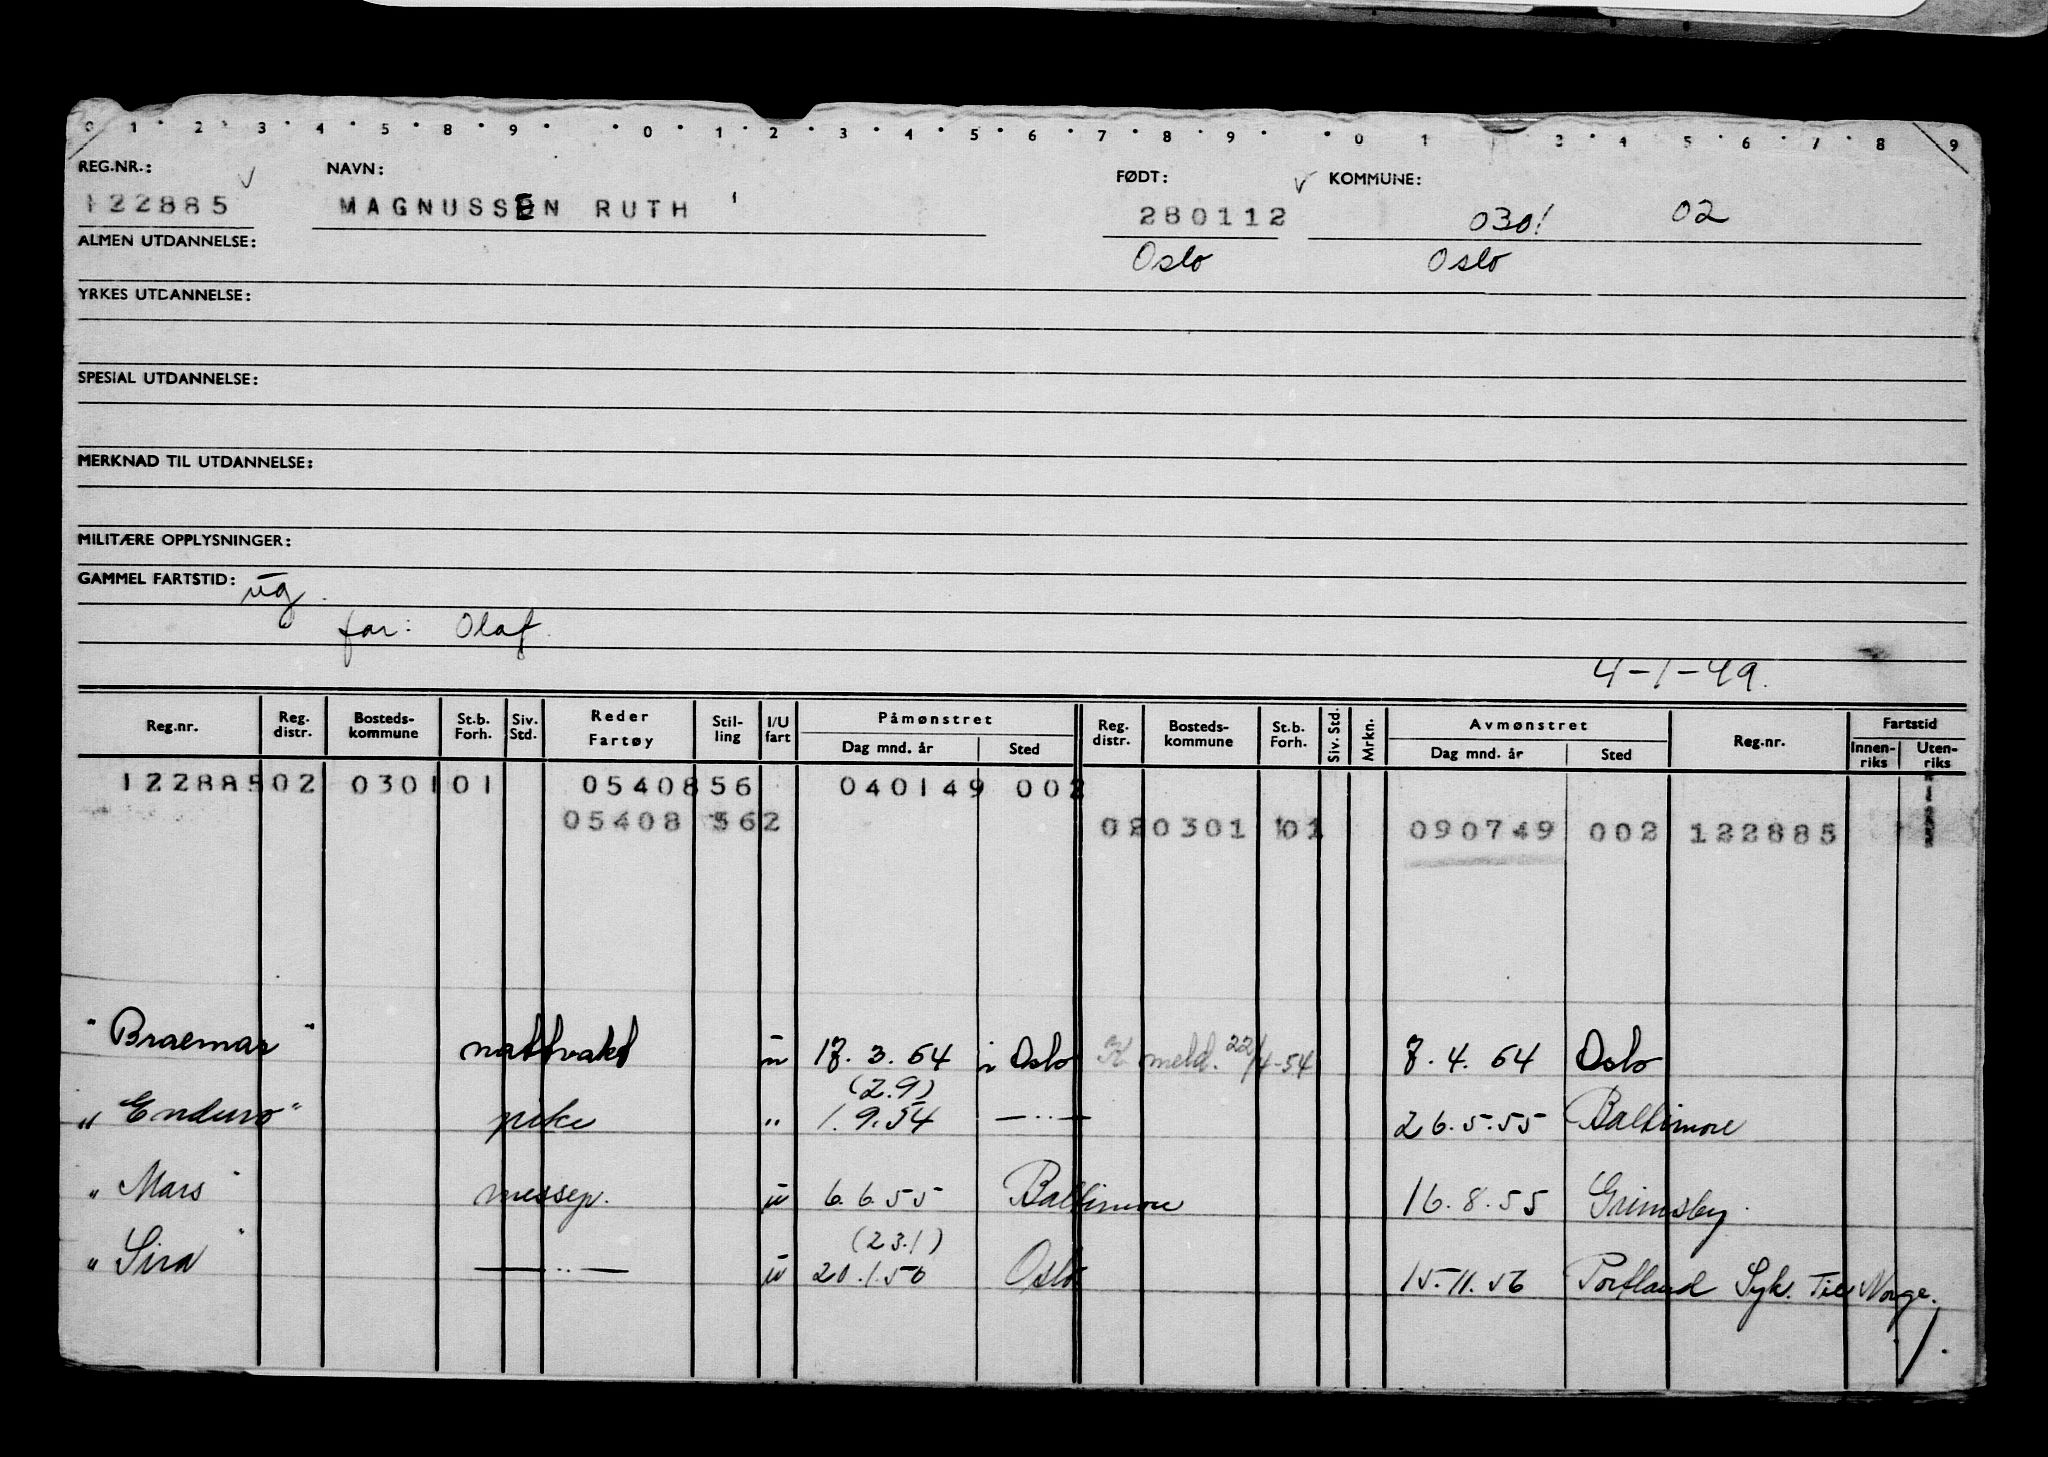 0 1 2 3 4 5 8 9 0 1 2 3 4 5 6 7 8 9 0 1 3 4 5 6 7 8 9
REG.NR.: NAVN: FØDT: KOMMUNE:
122885 MAGNUSSEN RUTH 280112 0301 02
ALMEN UTDANNELSE: Oslo Oslo
YRKES UTDANNELSE:
SPESIAL UTDANNELSE:
MERKNAD TIL UTDANNELSE:
MILITÆRE OPPLYSNINGER:
GAMMEL FARTSTID: ug.
far: Olaf.
4-1-49.
Reg.nr. Reg. distr. Bosteds-kommune St.b. Forh. Siv. Std. Reder Fartøy Stil-ling I/U fart Påmønstret Dag mnd. år Sted Reg. distr. Bosteds-kommune St.b. Forh. Siv. Std. Mrkn. Avmønstret Dag mnd. år Sted Reg.nr. Fartstid Innen-riks Uten-riks
122885 02 0301 01 05408 56 040149 002
05408 562 02 0301 01 090749 002 122885
"Braemar" nattvakt u 17.3.54 i Oslo meld. 22/4-54 7.4.54 Oslo
(2.9)
"Enduro" pike " 1.9.54 —"— 26.5.55 Baltimore
"Mars" messep. u 6.6.55 Baltimore 16.8.55 Grimsby.
(23.1)
"Sira" —"— u 20.1.56 Oslo 15.11.56 Portland Syk. Til Norge.